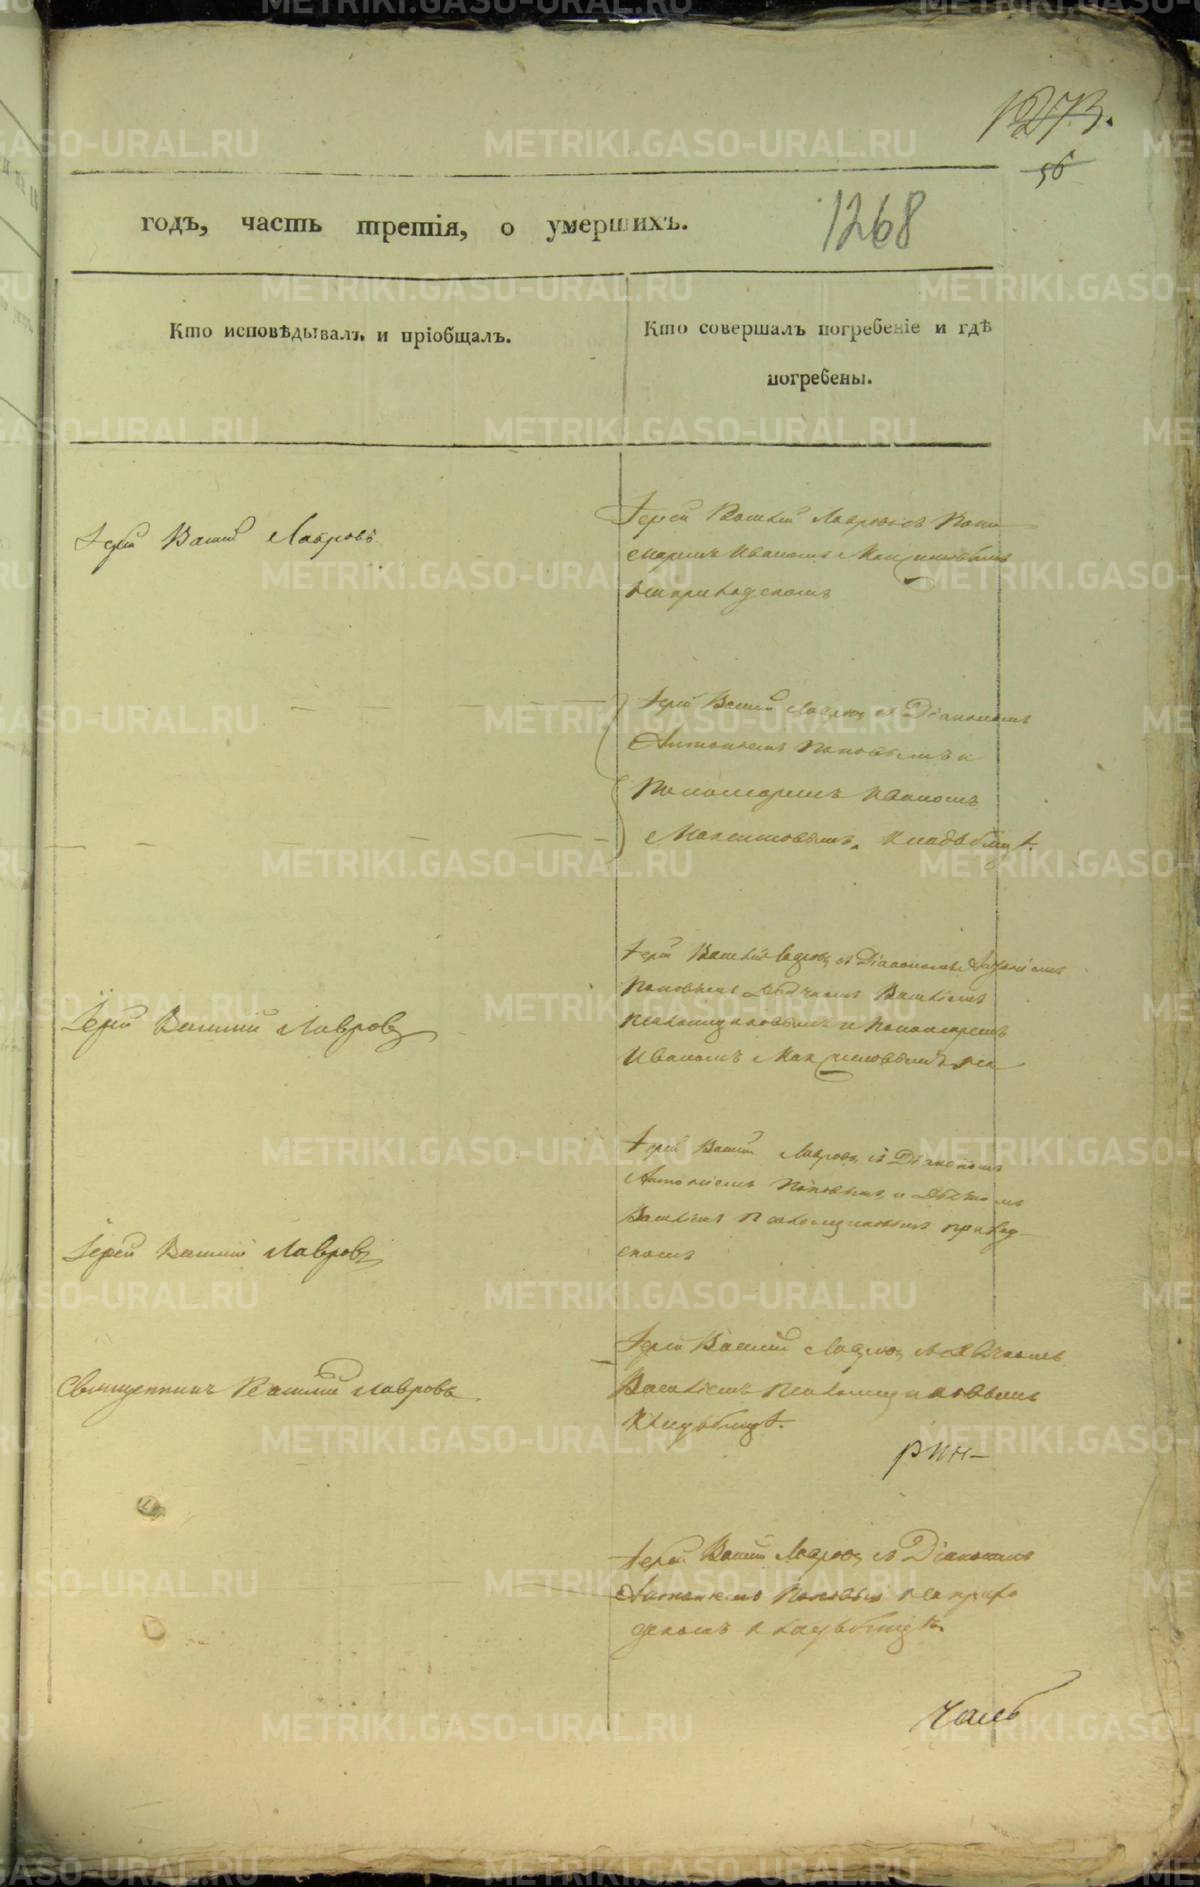 56
годъ, часть третія, о умершихъ.
1268
Кто исповѣдывалъ и пріобщалъ.
Кто совершалъ погребеніе и гдѣ
погребены.
Іерей Василій Лавровъ
Іерей Василій Лавровъ с Поно
маремъ Иваномъ Максимовымъ
на приходскомъ
Іерей Василій Лавровъ съ Діакономъ
Антоніемъ Поповымъ и
Пономаремъ Иваномъ
Максимовымъ. кладбищѣ.
Іерей Василій Лавровъ
Іерей Василій Лавровъ съ Діакономъ Антоніемъ
Поповымъ Дьячкомъ Василіемъ
и Пономаремъ
Иваномъ Максимовымъ на
Іерей Василій Лавровъ
Іерей Василій Лавровъ съ Діакономъ
Антоніемъ Поповымъ и Дьячкомъ
Василіемъ приход
скомъ
Священникъ Василій Лавровъ
Іерей Василій Лавровъ съ Дьячкомъ
Василіемъ
кладбищѣ.
Іерей Василій Лавровъ съ Діакономъ
Антоніемъ Поповымъ на прихо
дскомъ кладбищѣ.
METRIKI.GASO-URAL.RU